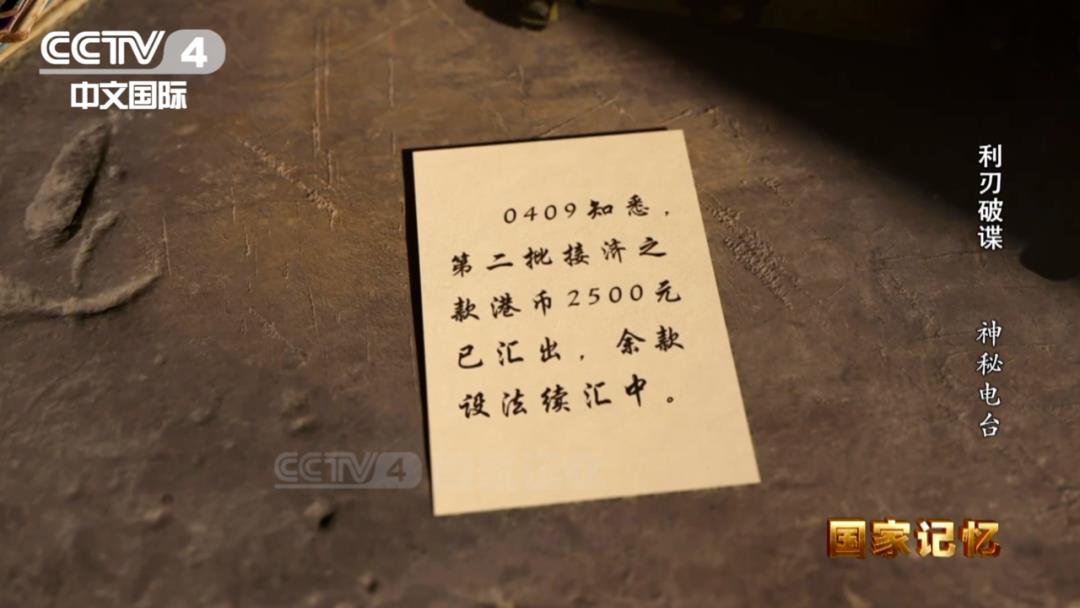 CCTV 4
中文国际
利刃破谍 神秘电台
0409知悉,
第二批接济之
款港币2500元
已汇出,余款
设法续汇中。
CCTV 4
国家记忆